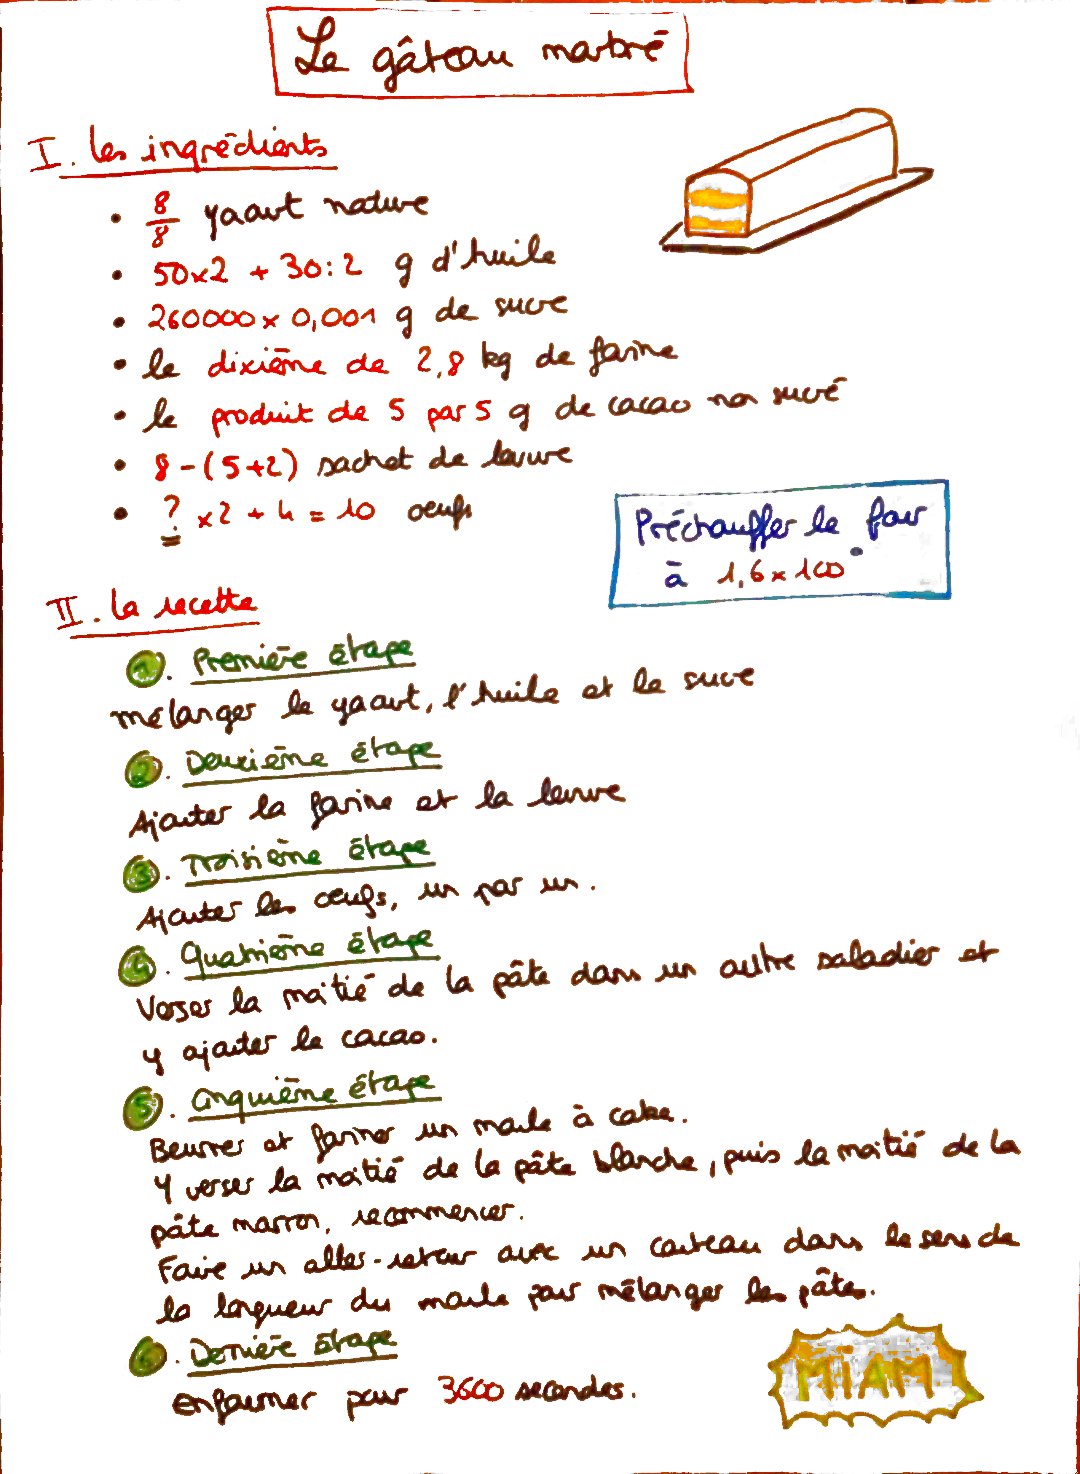 Le gâteau marbré
I. les ingrédients
• 8/8 yaourt nature
• 50x2 + 30:2 g d'huile
• 260000 x 0,001 g de sucre
• le dixième de 2,8 kg de farine
• le produit de 5 par 5 g de cacao non sucré
• 8-(5+2) sachet de levure
• ? x2 + 4 = 10 oeufs
Préchauffer le four
à 1,6 x 100°
II. la recette
1. Première étape
mélanger le yaourt, l'huile et le sucre
2. Deuxième étape
Ajouter la farine et la levure
3. Troisième étape
Ajouter les oeufs, un par un.
4. Quatrième étape
Verser la moitié de la pâte dans un autre saladier et
y ajouter le cacao.
5. Cinquième étape
Beurrer et fariner un moule à cake.
Y verser la moitié de la pâte blanche, puis la moitié de la
pâte marron, recommencer.
Faire un aller-retour avec un couteau dans le sens de
la longueur du moule pour mélanger les pâtes.
6. Dernière étape
enfourner pour 3600 secondes.
MIAM